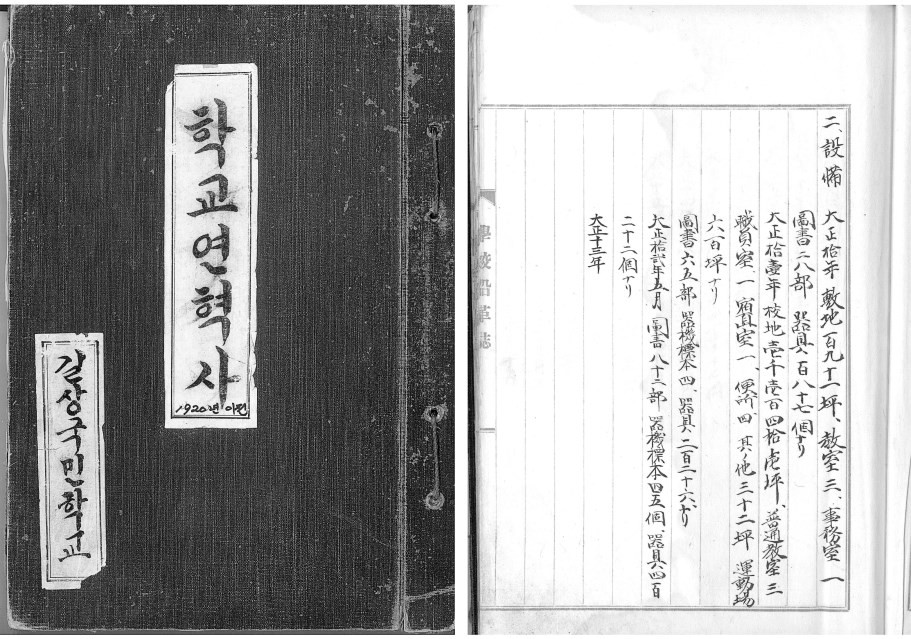 학교연혁사
1920년 이전
길상국민학교
二、設備
大正拾年 敷地百九十一坪、教室三、事務室一
圖書二八部 器具百八十七個ナリ
大正拾壹年 校地壱千壱百四拾壱坪、普通教室三
職員室、一 宿直室一、便所四 其ノ他三十二坪 運動場
六百坪ナリ
圖書六五部 器機標本四、器具二百二十六、ナリ
大正拾弐年五月 圖書八十三部 器機標本四五個、器具四百
二十二個ナリ
大正十三年
學校沿革誌